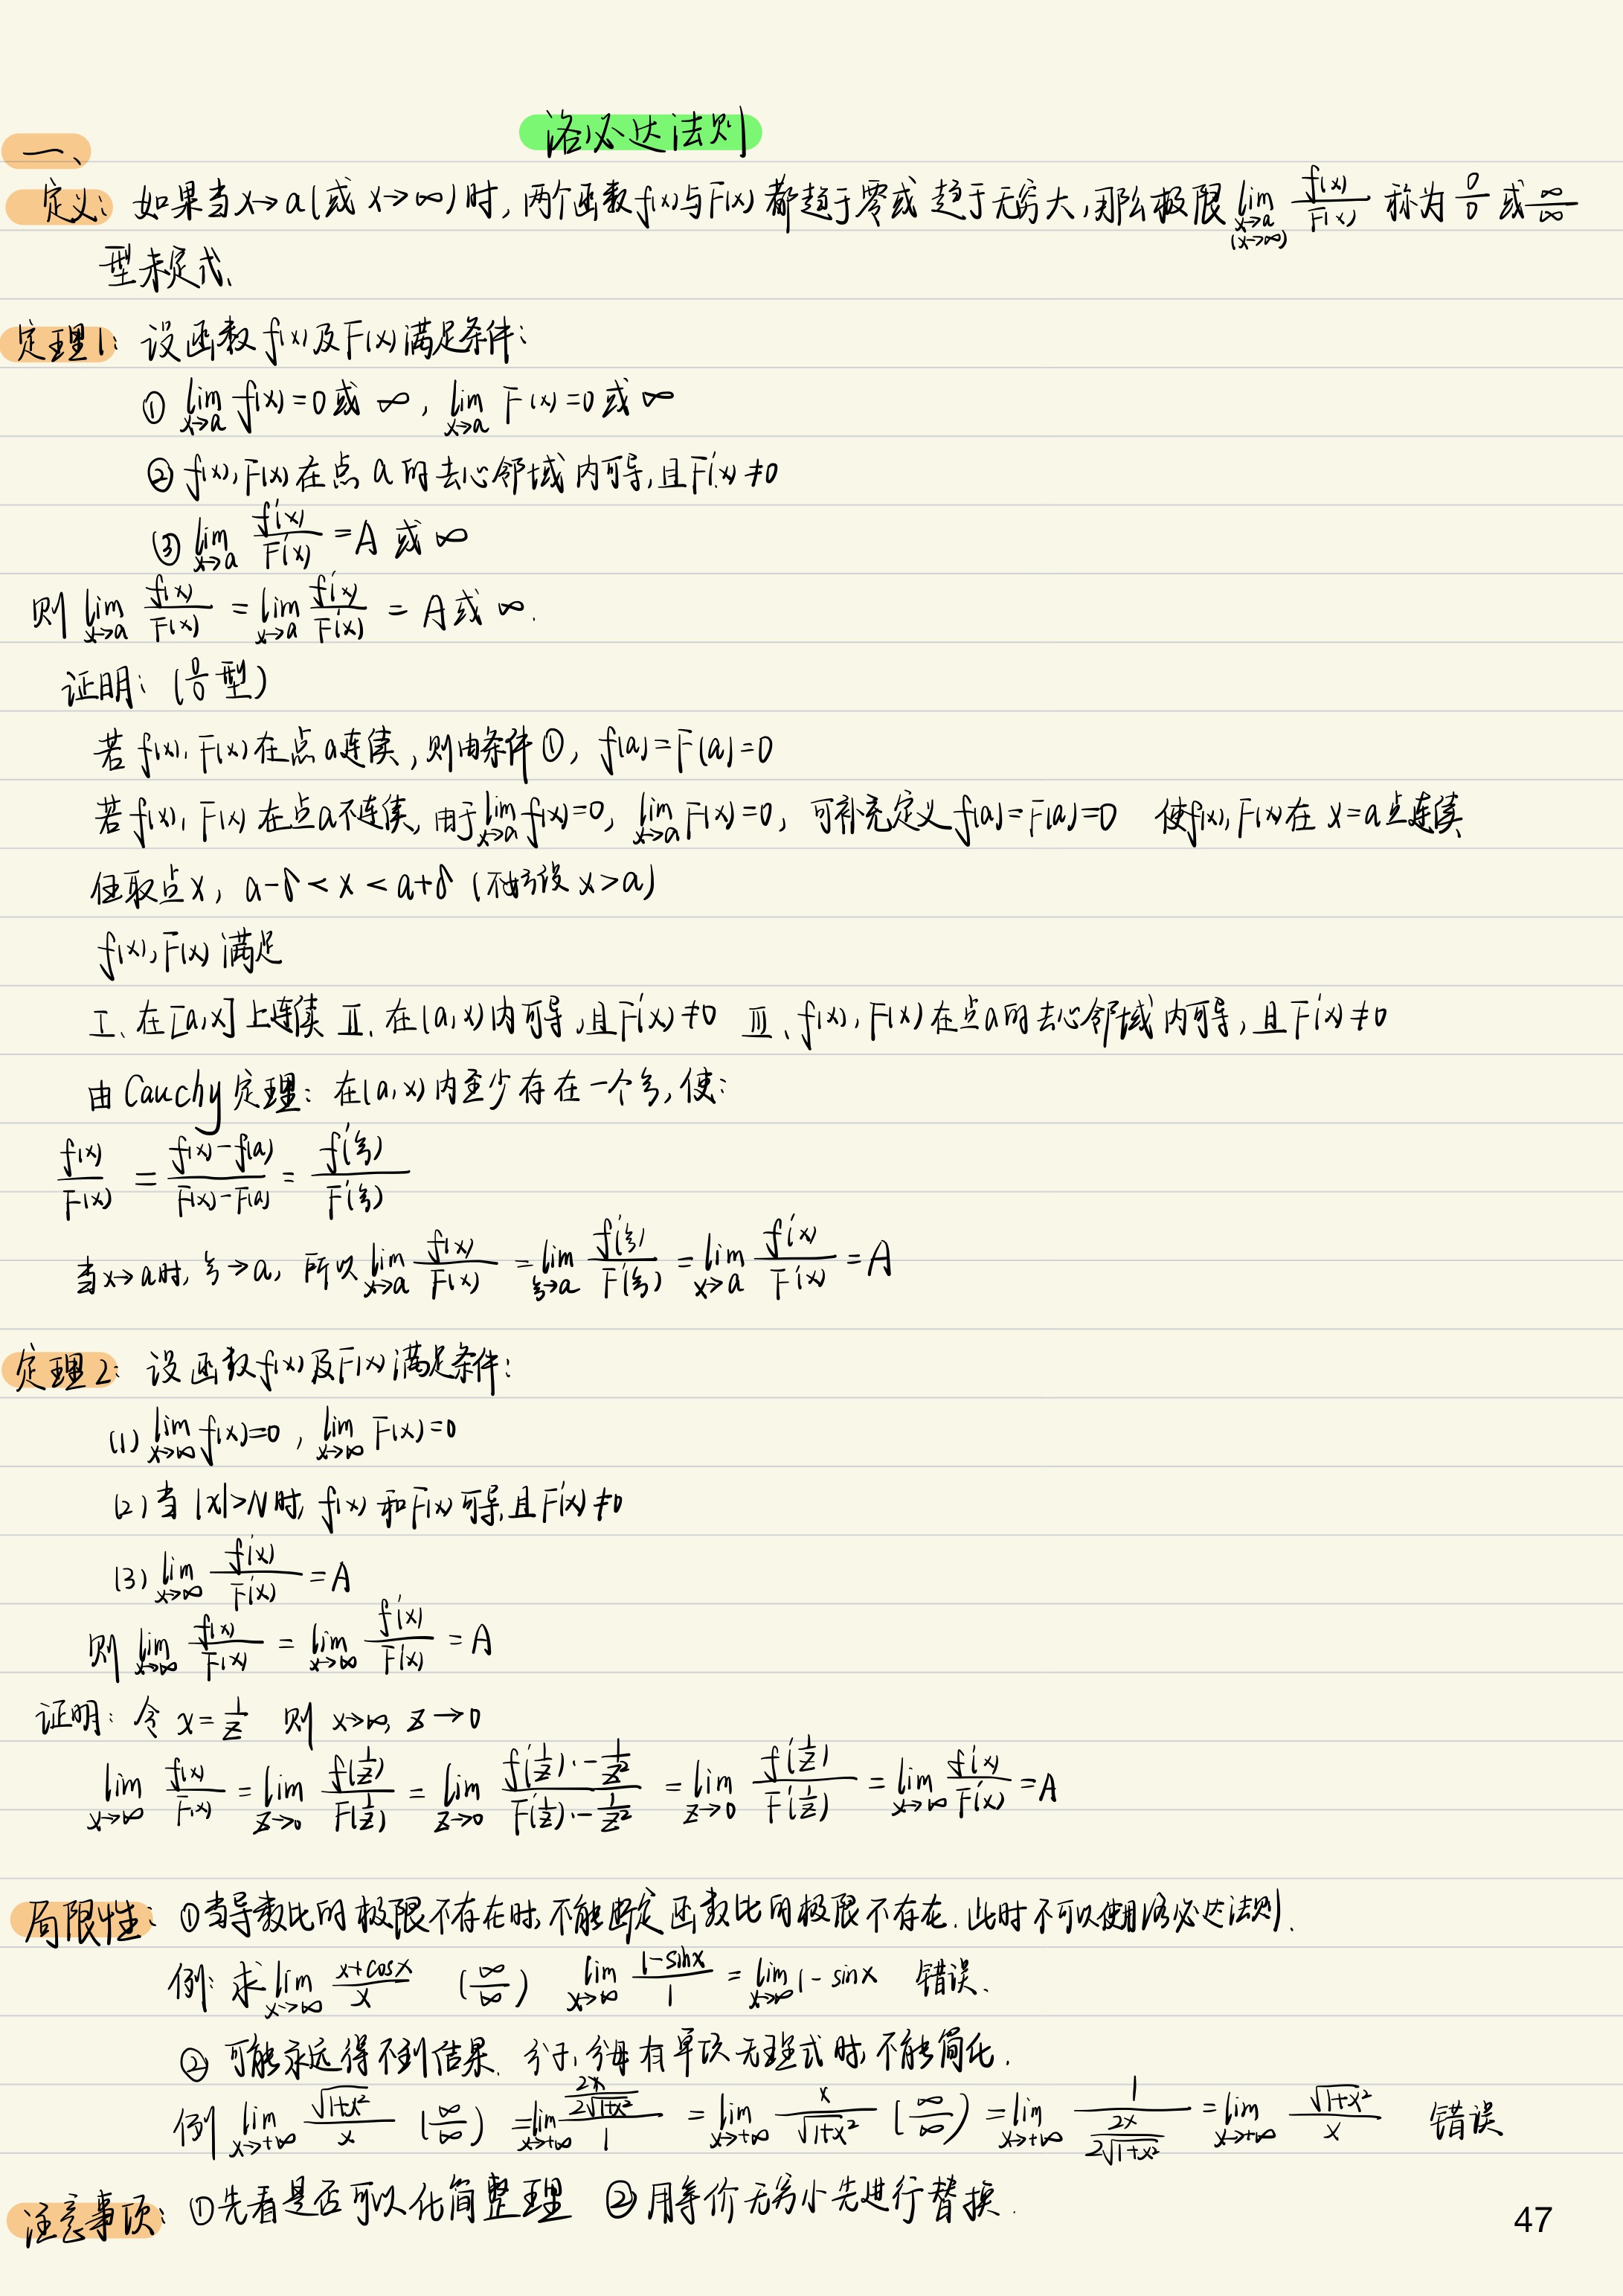 洛必达法则
一、
定义: 如果当x→a(或x→∞)时,两个函数f(x)与F(x)都趋于零或趋于无穷大,那么极限 lim_{x→a (x→∞)} f(x)/F(x) 称为 0/0 或 ∞/∞
型未定式、
定理1: 设函数f(x)及F(x)满足条件:
① lim_{x→a} f(x)=0或∞, lim_{x→a} F(x)=0或∞
② f(x),F(x)在点a的去心邻域内可导,且F'(x)≠0
③ lim_{x→a} f'(x)/F'(x) =A 或∞
则 lim_{x→a} f(x)/F(x) = lim_{x→a} f'(x)/F'(x) = A或∞.
证明: (0/0型)
若f(x),F(x)在点a连续,则由条件①, f(a)=F(a)=0
若f(x),F(x)在点a不连续,由于 lim_{x→a} f(x)=0, lim_{x→a} F(x)=0, 可补充定义f(a)=F(a)=0 使f(x),F(x)在x=a点连续
任取点x, a-δ<x<a+δ (不妨设x>a)
f(x),F(x)满足
I、在[a,x]上连续 II、在(a,x)内可导,且F'(x)≠0 III、f(x),F(x)在点a的去心邻域内可导,且F'(x)≠0
由Cauchy定理: 在(a,x)内至少存在一个ξ,使:
f(x)/F(x) = (f(x)-f(a))/(F(x)-F(a)) = f'(ξ)/F'(ξ)
当x→a时,ξ→a, 所以 lim_{x→a} f(x)/F(x) = lim_{ξ→a} f'(ξ)/F'(ξ) = lim_{x→a} f'(x)/F'(x) = A
定理2: 设函数f(x)及F(x)满足条件:
(1) lim_{x→∞} f(x)=0, lim_{x→∞} F(x)=0
(2)当|x|>N时,f(x)和F(x)可导,且F'(x)≠0
(3) lim_{x→∞} f'(x)/F'(x) =A
则 lim_{x→∞} f(x)/F(x) = lim_{x→∞} f'(x)/F(x) = A
证明: 令 x=1/z 则 x→∞, z→0
lim_{x→∞} f(x)/F(x) = lim_{z→0} f(1/z)/F(1/z) = lim_{z→0} (f'(1/z)·-1/z²)/(F'(1/z)·-1/z²) = lim_{z→0} f'(1/z)/F'(1/z) = lim_{x→∞} f'(x)/F'(x) =A
局限性: ①当导数比的极限不存在时,不能断定函数比的极限不存在.此时不可以使用洛必达法则.
例: 求 lim_{x→∞} (x+cosx)/x (∞/∞) lim_{x→∞} (1-sinx)/1 = lim_{x→∞} 1-sinx 错误.
② 可能永远得不到结果. 分子,分母有单项无理式时,不能简化.
例 lim_{x→+∞} √(1+x²)/x (∞/∞) = lim_{x→+∞} (2x/(2√(1+x²)))/1 = lim_{x→+∞} x/√(1+x²) (∞/∞) = lim_{x→+∞} 1/(2x/(2√(1+x²))) = lim_{x→+∞} √(1+x²)/x 错误
注意事项: ①先看是否可以化简整理 ②用等价无穷小先进行替换.
47